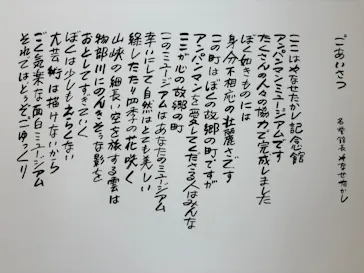 ごあいさつ
名誉館長 やなせたかし
ここはやなせたかし記念館
アンパンマンミュージアムです
たくさんの人の協力で完成しました
ぼく如きものには
身分不相応の壮麗さです
この町はぼくの故郷の町ですが
アンパンマンを愛してくださる人はみんな
ここが心の故郷の町
このミュージアムはあなたのミュージアム
幸いにして自然はとても美しい
緑したたり四季の花咲く
山峡の細長い空を旅する雲は
物部川にのんきそうな影を
おとしてすぎていく
ぼくは少しもえらくない
大芸術は描けないから
ごく気楽な面白ミュージアム
それではどうぞごゆっくり